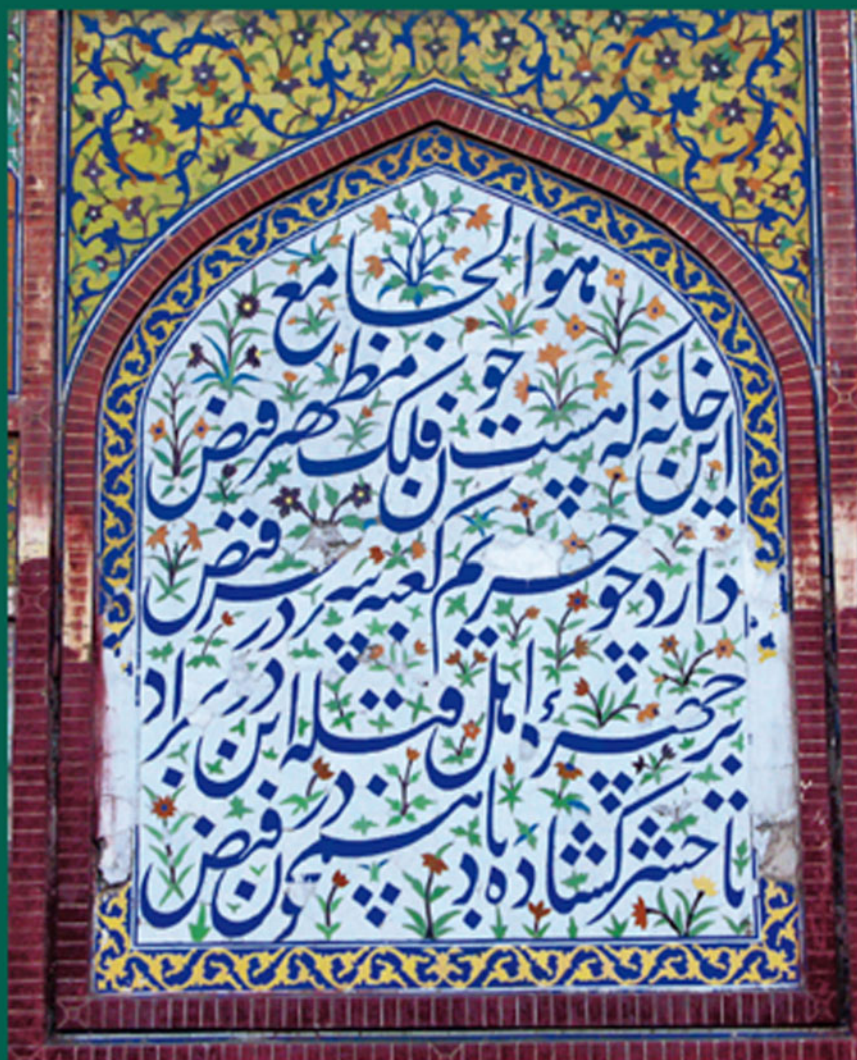 هو الجامع
این خانه که هست چون فلک مظهر فیض
دارد چو حریم کعبه سر در سر فیض
بر چهرهٔ اهل قبله این در
تا حشر کشاده باد همچون در فیض